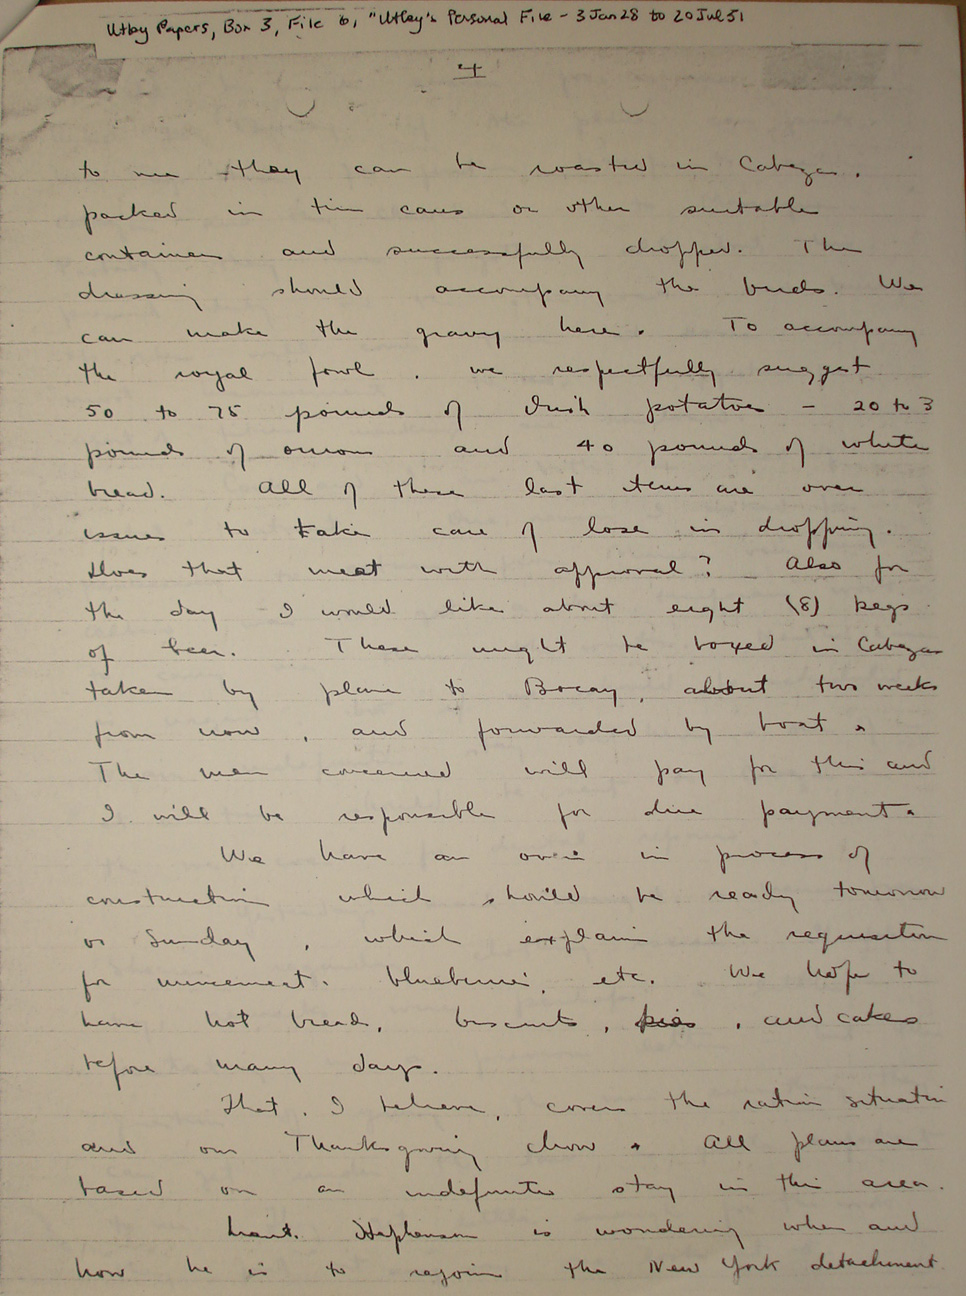 Utley Papers, Box 3, File 6, "Utley's Personal File - 3 Jan 28 to 20 Jul 31
4
to me they can be roasted in Cabezas.
packed in tin cans or other suitable
containers and successfully dropped. The
dressing should accompany the birds. We
can make the gravy here. To accompany
the royal fowl, we respectfully suggest
50 to 75 pounds of Irish potatoes - 20 to 3
pounds of onions and 40 pounds of white
bread. All of these last items are over
issues to take care of lose in dropping.
Does that meet with approval? Also for
the day I would like about eight (8) kegs
of beer. These might be boxed in Cabezas
taken by plane to Bocay, about two weeks
from now, and forwarded by boat.
The men concerned will pay for this and
I will be responsible for due payment.
We have an oven in process of
construction which should be ready tomorrow
or Sunday, which explains the requisition
for mincemeat, blueberries, etc. We hope to
have hot bread, biscuits, pies, and cakes
before many days.
That, I believe, covers the ration situation
and our Thanksgiving chow. All plans are
based on an indefinite stay in this area.
Lieut. Stephenson is wondering when and
how he is to rejoin the New York detachment